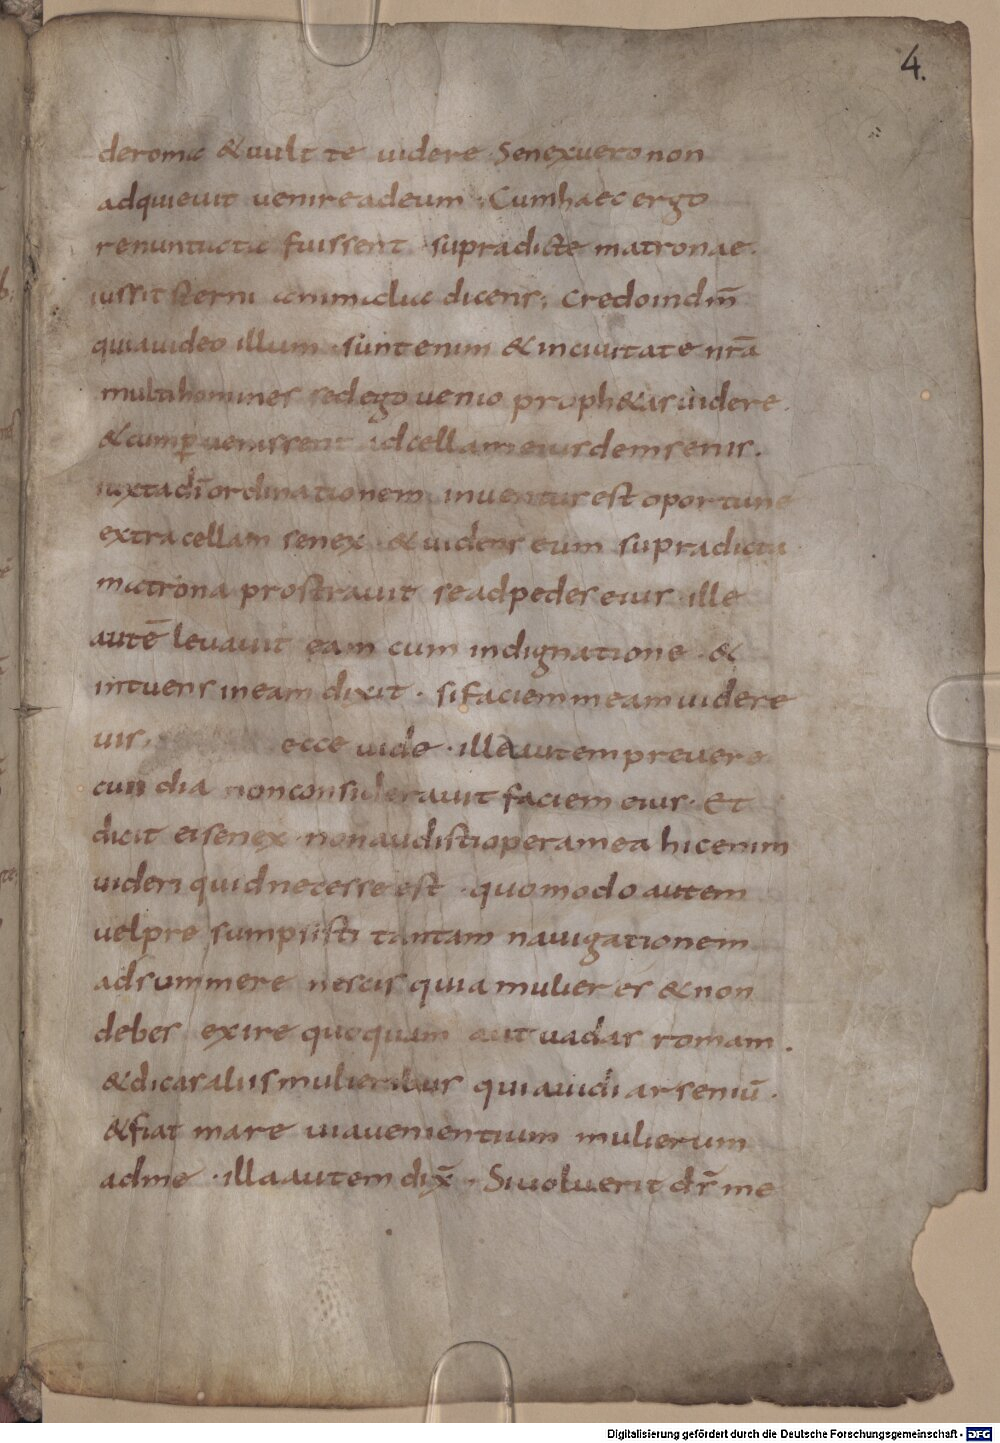 4.
deroma & uult te uidere Senexuero non
adquieuit uenire adeum . Cumhaec ergo
renuntiata fuissent . supradicte matronae .
iussit sterni animalia dicens ; credo in dm̅
quia uideo illum . sunt enim & in ciuitate nr̅a
multi homines sed ego uenio proph&as uidere .
& cum p̲uenissent ad cellam eiusdem senis .
iuxta di̅ ordinationem inuentus est oportune
extra cellam senex . & uidens eum supradicta
matrona prostrauit se ad pedes eius ille
aute̅ leuauit eam cum indignatione . &
intuens in eam dixit . si faciem meam uidere
uis . ecce uide . illa autem preuere
cundia non considerauit faciem eius . Et
dicit ei senex . non audisti opera mea hic enim
uideri quid necesse est . quomodo autem
uel presumpsisti tantam nauigationem
adsummere nescis quia mulier es & non
debes exire quoquam aut uadas romam .
& dicas aliis mulieribus quia uidi arseniu̅ .
& fiat mare uia uenientium mulierum
ad me . illa autem dix̅ . Si uoluerit dn̅s me
Digitalisierung gefördert durch die Deutsche Forschungsgemeinschaft - DFG